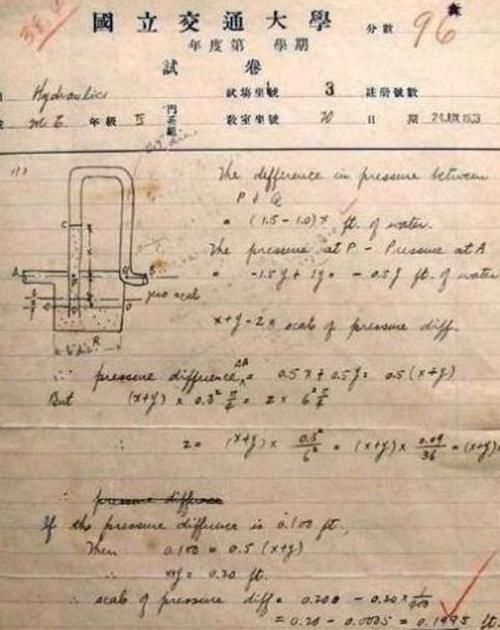 國立交通大學
分數 96
年度第 學期
試卷
Hydraulics 試場坐號 3 註册號數
M E 年級 II 門系組 教室坐號 70 日期 24 JUN 1933
(1)
The difference in pressure between
P & Q
= (1.5 - 1.0)x ft. of water.
The pressure at P - Pressure at A
= -1.5y + 1y = -0.5y ft. of water
C
A
B
zero scale
R
x+y-z = scale of pressure diff.
∴ pressure difference = 0.5x + 0.5y = 0.5(x+y)
But (x+y) × 0.3² π/4 = z × 6² π/4
∴ z = (x+y) × 0.3²/6² = (x+y) × 0.09/36 = (x+y)
∴ pressure diffence
If the pressure diffence is 0.100 ft.,
Then 0.100 = 0.5 (x+y)
∴ x+y = 0.20 ft.
∴ scale of pressure diff = 0.200 - 0.20 × 1/400
= 0.20 - 0.0005 = 0.1995 ft.